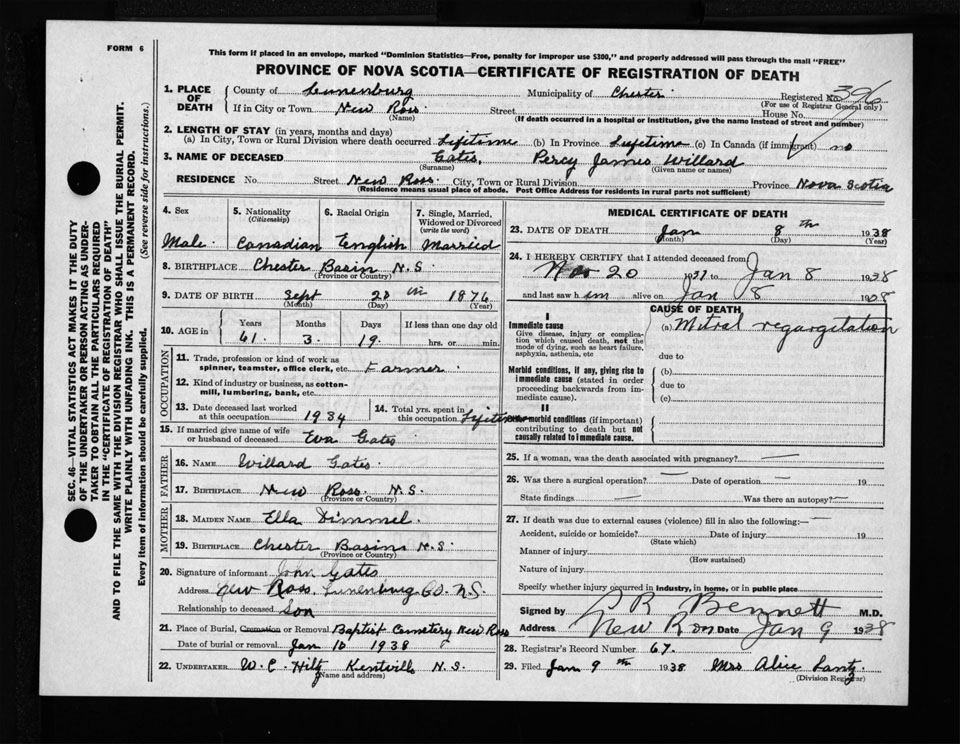 FORM 6
This form if placed in an envelope, marked "Dominion Statistics—Free, penalty for improper use $300," and properly addressed will pass through the mail "FREE"
PROVINCE OF NOVA SCOTIA—CERTIFICATE OF REGISTRATION OF DEATH
1. PLACE OF DEATH County of Lunenburg Municipality of Chester Registered No. 396
(For use of Registrar General only)
If in City or Town New Ross Street House No.
(Name) (If death occurred in a hospital or institution, give the name instead of street and number)
2. LENGTH OF STAY (in years, months and days)
(a) In City, Town or Rural Division where death occurred Lifetime (b) In Province Lifetime (c) In Canada (if immigrant) no
3. NAME OF DECEASED Gates, Percy James Willard
(Surname) (Given name or names)
RESIDENCE No. Street New Ross City, Town or Rural Division Province Nova Scotia
(Residence means usual place of abode. Post Office Address for residents in rural parts not sufficient)
4. Sex 5. Nationality 6. Racial Origin 7. Single, Married, Widowed or Divorced
(Citizenship) (write the word)
Male. Canadian English Married
8. BIRTHPLACE Chester Basin N.S.
(Province or Country)
9. DATE OF BIRTH Sept 20th 1876
(Month) (Day) (Year)
10. AGE in Years Months Days If less than one day old
61. 3. 19. hrs. or min.
OCCUPATION
11. Trade, profession or kind of work as spinner, teamster, office clerk, etc. Farmer
12. Kind of industry or business, as cotton-mill, lumbering, bank, etc.
13. Date deceased last worked at this occupation 1934 14. Total yrs. spent in this occupation Lifetime
15. If married give name of wife or husband of deceased Eva Gates
FATHER
16. NAME Willard Gates.
17. BIRTHPLACE New Ross. N.S.
(Province or Country)
MOTHER
18. MAIDEN NAME Ella Dimmel.
19. BIRTHPLACE Chester Basin N.S.
(Province or Country)
20. Signature of informant John Gates
Address New Ross, Lunenburg Co. N.S.
Relationship to deceased Son
21. Place of Burial, Cremation or Removal Baptist Cemetery New Ross
Date of burial or removal Jan 10 1938
22. UNDERTAKER W. C. Hiltz Kentville N.S.
(Name and address)
MEDICAL CERTIFICATE OF DEATH
23. DATE OF DEATH Jan 8th 1938
(Month) (Day) (Year)
24. I HEREBY CERTIFY that I attended deceased from
Nov 20 1937 to Jan 8 1938
and last saw him alive on Jan 8 1938
CAUSE OF DEATH
I
Immediate cause
Give disease, injury or complication which caused death, not the mode of dying, such as heart failure, asphyxia, asthenia, etc
(a) Mitral regurgitation
due to
Morbid conditions, if any, giving rise to immediate cause (stated in order proceeding backwards from immediate cause).
(b)
due to
(c)
II
Other morbid conditions (if important) contributing to death but not causally related to immediate cause.
25. If a woman, was the death associated with pregnancy? —
26. Was there a surgical operation? — Date of operation — 19
State findings — Was there an autopsy? —
27. If death was due to external causes (violence) fill in also the following:—
Accident, suicide or homicide? Date of injury 19
(State which)
Manner of injury
(How sustained)
Nature of injury
Specify whether injury occurred in industry, in home, or in public place
Signed by R Bennett M.D.
Address New Ross Date Jan 9 1938
28. Registrar's Record Number 67.
29. Filed Jan 9th 1938 Mrs Alice Lantz.
(Division Registrar)
SEC. 46—VITAL STATISTICS ACT MAKES IT THE DUTY
OF THE UNDERTAKER OR PERSON ACTING AS UNDER-
TAKER TO OBTAIN ALL THE PARTICULARS REQUIRED
IN THE "CERTIFICATE OF REGISTRATION OF DEATH"
AND TO FILE THE SAME WITH THE DIVISION REGISTRAR WHO SHALL ISSUE THE BURIAL PERMIT.
WRITE PLAINLY WITH UNFADING INK. THIS IS A PERMANENT RECORD.
Every item of information should be carefully supplied. (See reverse side for instructions.)